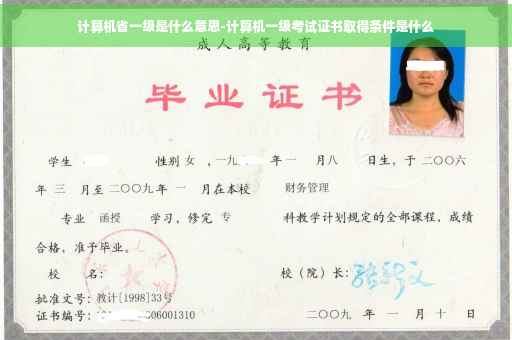 计算机省一级是什么意思-计算机一级考试证书取得条件是什么
成人高等教育
毕业证书
学生 性别 女 ,一九 年 一 月八 日生,于 二〇〇六
年 三 月至 二〇〇九 年 一 月在本校 财务管理
专业 函授 学习,修完 专 科教学计划规定的全部课程,成绩
合格,准予毕业。
校 名: 校(院)长:
批准文号:教计[1998]33号
证书编号: 006001310 二〇〇九 年 一 月 十 日